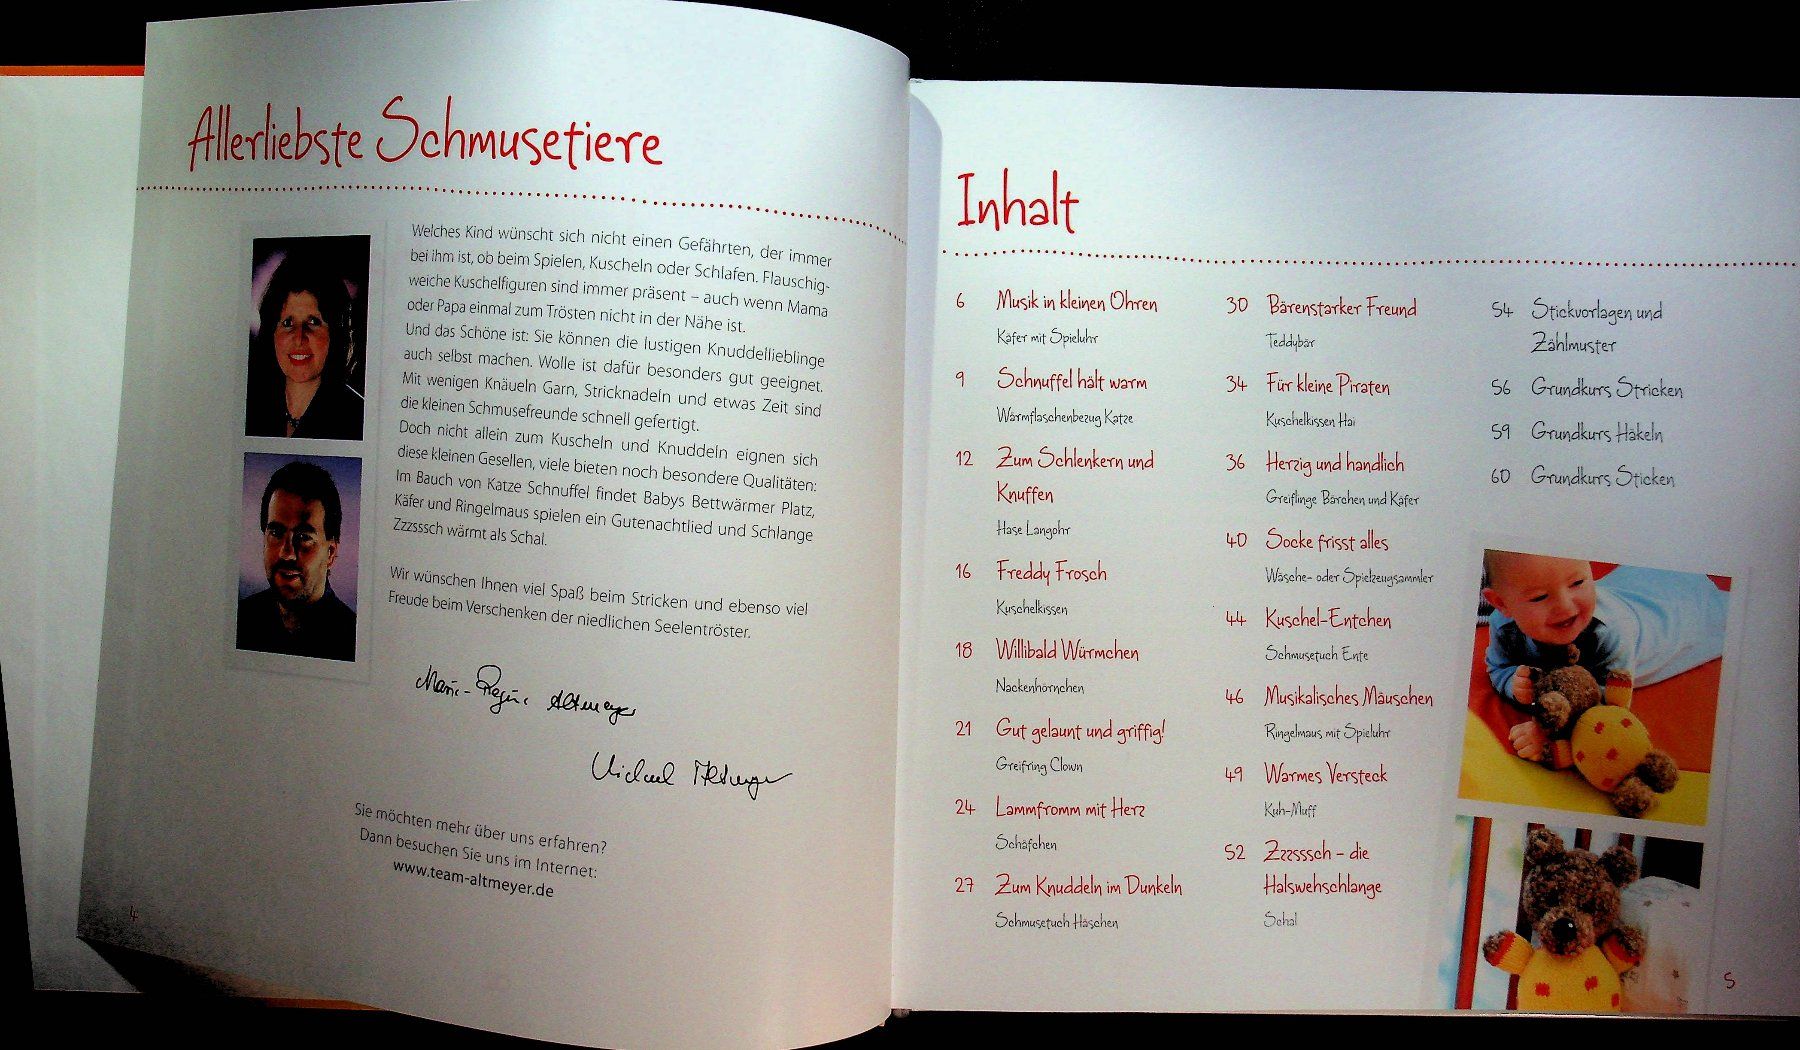 Allerliebste Schmusetiere
Welches Kind wünscht sich nicht einen Gefährten, der immer
bei ihm ist, ob beim Spielen, Kuscheln oder Schlafen. Flauschig-
weiche Kuschelfiguren sind immer präsent – auch wenn Mama
oder Papa einmal zum Trösten nicht in der Nähe ist.
Und das Schöne ist: Sie können die lustigen Knuddellieblinge
auch selbst machen. Wolle ist dafür besonders gut geeignet.
Mit wenigen Knäueln Garn, Stricknadeln und etwas Zeit sind
die kleinen Schmusefreunde schnell gefertigt.
Doch nicht allein zum Kuscheln und Knuddeln eignen sich
diese kleinen Gesellen, viele bieten noch besondere Qualitäten:
Im Bauch von Katze Schnuffel findet Babys Bettwärmer Platz,
Käfer und Ringelmaus spielen ein Gutenachtlied und Schlange
Zzzsssch wärmt als Schal.
Wir wünschen Ihnen viel Spaß beim Stricken und ebenso viel
Freude beim Verschenken der niedlichen Seelentröster.
Marie-Regine Altmeyer
Michael Altmeyer
Sie möchten mehr über uns erfahren?
Dann besuchen Sie uns im Internet:
www.team-altmeyer.de
4
Inhalt
6 Musik in kleinen Ohren
Käfer mit Spieluhr
9 Schnuffel hält warm
Wärmflaschenbezug Katze
12 Zum Schlenkern und
Knuffen
Hase Langohr
16 Freddy Frosch
Kuschelkissen
18 Willibald Würmchen
Nackenhörnchen
21 Gut gelaunt und griffig!
Greifring Clown
24 Lammfromm mit Herz
Schäfchen
27 Zum Knuddeln im Dunkeln
Schmusetuch Häschen
30 Bärenstarker Freund
Teddybär
34 Für kleine Piraten
Kuschelkissen Hai
36 Herzig und handlich
Greiflinge Bärchen und Käfer
40 Socke frisst alles
Wäsche- oder Spielzeugsammler
44 Kuschel-Entchen
Schmusetuch Ente
46 Musikalisches Mäuschen
Ringelmaus mit Spieluhr
49 Warmes Versteck
Kuh-Muff
52 Zzzsssch – die
Halswehschlange
Schal
54 Stickvorlagen und
Zählmuster
56 Grundkurs Stricken
59 Grundkurs Häkeln
60 Grundkurs Sticken
5